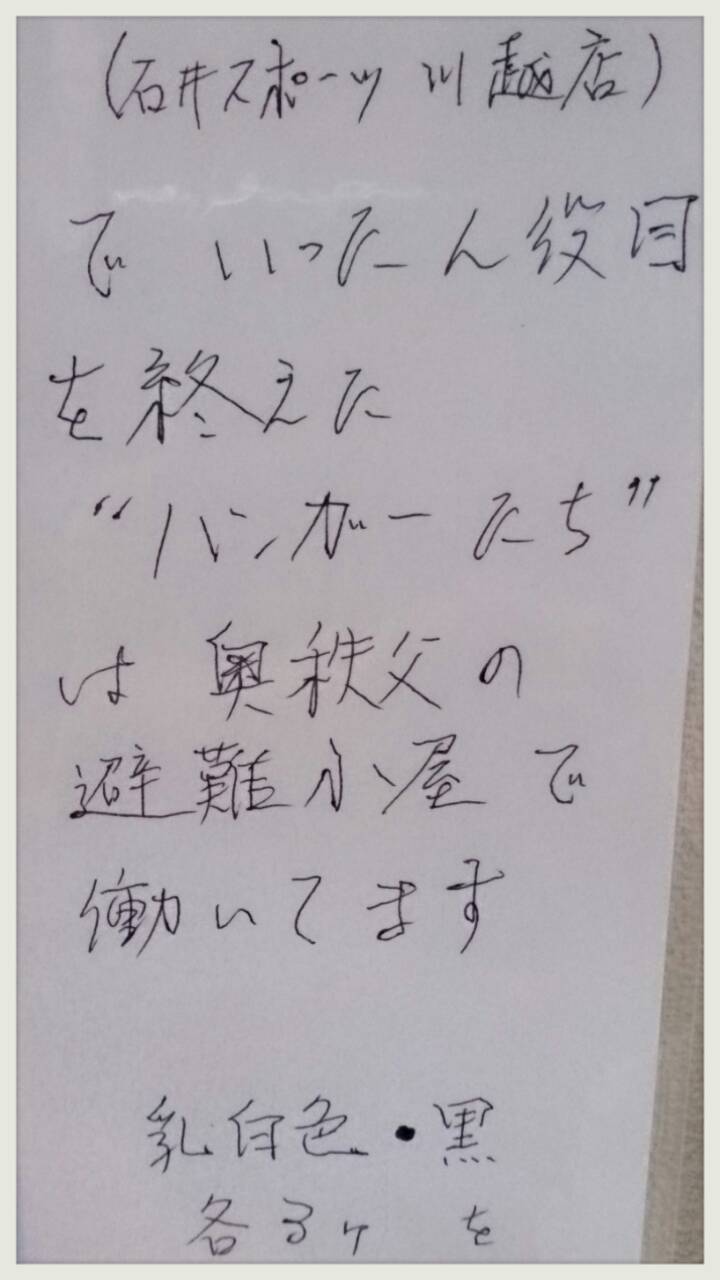 (石井スポーツ 川越店)
で いったん役目
を終えた
“ハンガーたち”
は 奥秩父の
避難小屋で
働いてます
乳白色・黒
各3ヶ を